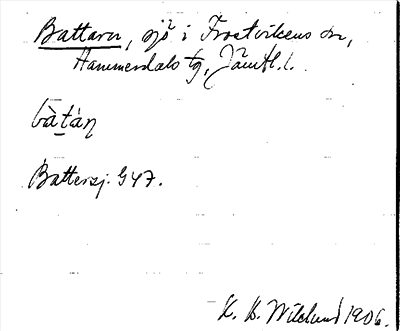 Battaren, sjö i Frostvikens sn,
Hammerdals tg, Jämtl. l.
bàt̠áŋ
Battersj. G47.
K. B. Wiklund 1906.